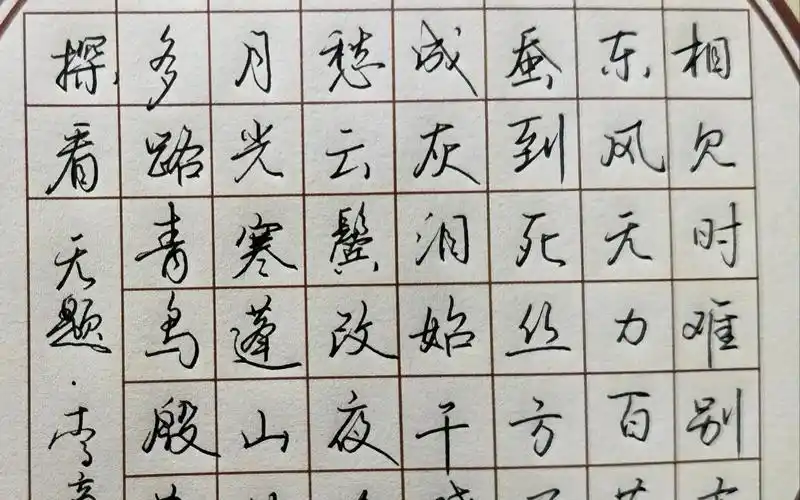 相见时难别
东风无力百
蚕到死丝方
成灰泪始干
愁云鬓改夜
月光寒蓬山
多路青鸟殷
探看
无题·李